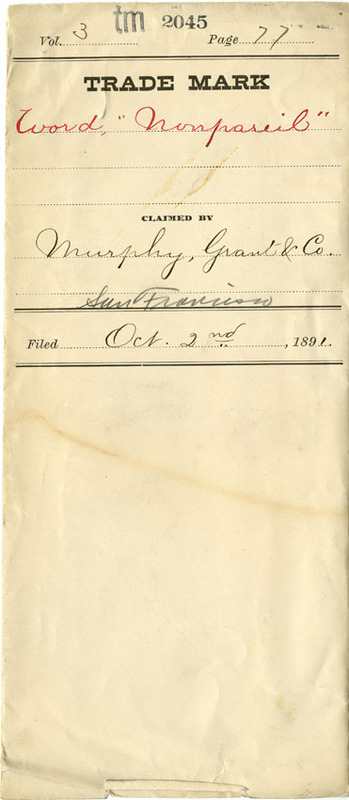 tm 2045
Vol. 3 Page 77
TRADE MARK
Word, "Nonpareil"
CLAIMED BY
Murphy, Grant & Co.
San Francisco
Filed Oct. 2nd, 1891.